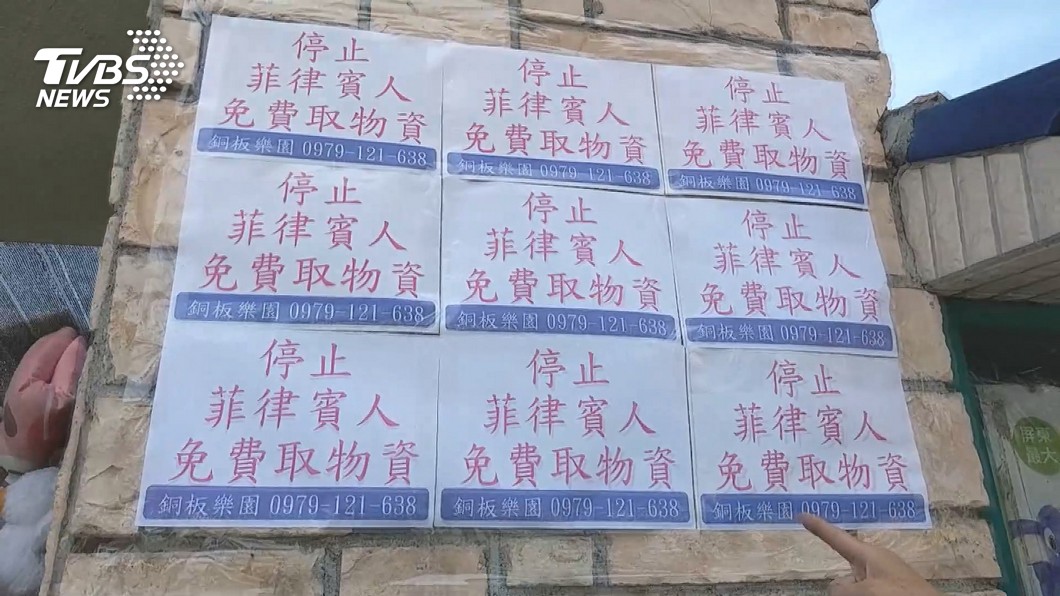 TVBS
NEWS
停止
菲律賓人
免費取物資
銅板樂園 0979-121-638
停止
菲律賓人
免費取物資
銅板樂園 0979-121-638
停止
菲律賓人
免費取物資
銅板樂園 0979-121-638
停止
菲律賓人
免費取物資
銅板樂園 0979-121-638
停止
菲律賓人
免費取物資
銅板樂園 0979-121-638
停止
菲律賓人
免費取物資
銅板樂園 0979-121-638
停止
菲律賓人
免費取物資
銅板樂園 0979-121-638
停止
菲律賓人
免費取物資
銅板樂園 0979-121-638
停止
菲律賓人
免費取物資
銅板樂園 0979-121-638
屏東
最大